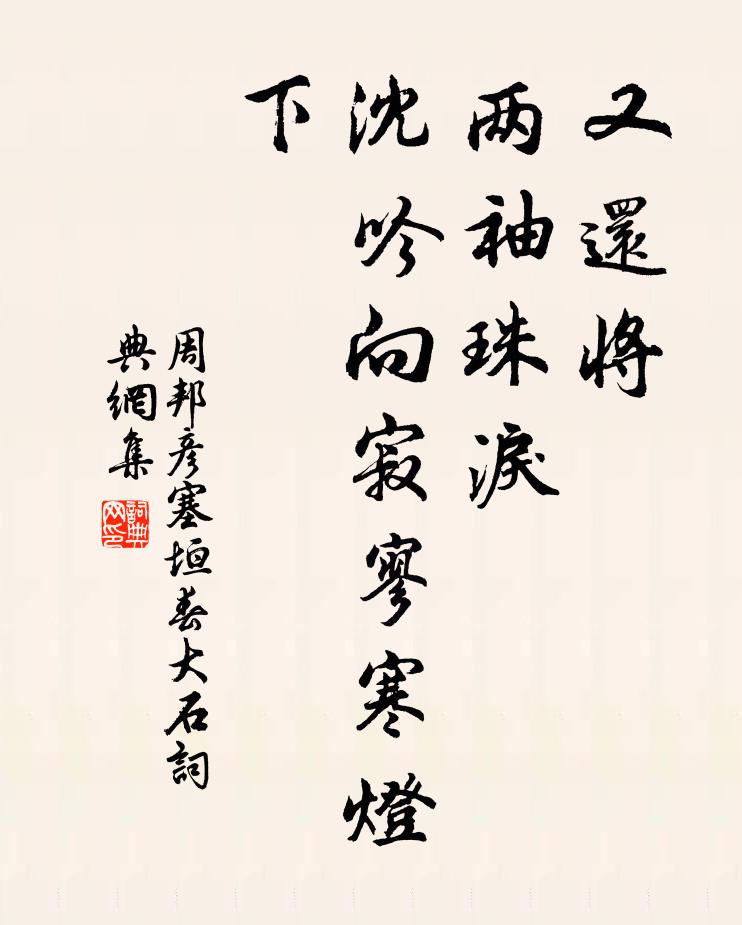 又還將
两袖珠淚
沈吟向寂寥寒燈
下
周邦彦塞垣春大石詞
典網集
詞典网印